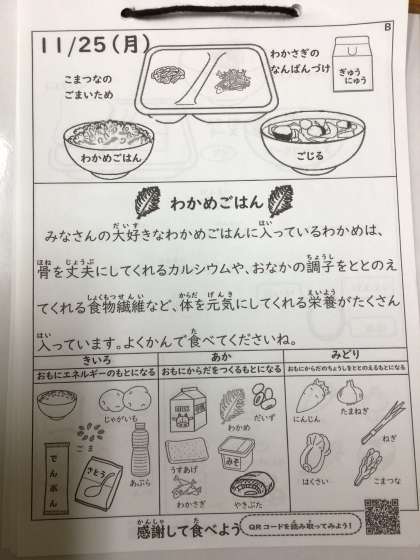 B
11/25(月)
こまつなの
ごまいため
わかさぎの
なんばんづけ
ぎゅう
にゅう
わかめごはん
ごじる
わかめごはん
みなさんの大好きなわかめごはんに入っているわかめは、
骨を丈夫にしてくれるカルシウムや、おなかの調子をととのえ
てくれる食物繊維など、体を元気にしてくれる栄養がたくさん
入っています。よくかんで食べてくださいね。
きいろ
おもにエネルギーのもとになる
じゃがいも
ごま
でんぷん
さとう
あぶら
あか
おもにからだをつくるもとになる
わかめ
だいず
うすあげ
みそ
わかさぎ
やきぶた
みどり
おもにからだのちょうしをととのえるもとになる
にんじん
たまねぎ
ねぎ
はくさい
こまつな
感謝して食べよう
QRコードを読み取ってみよう!